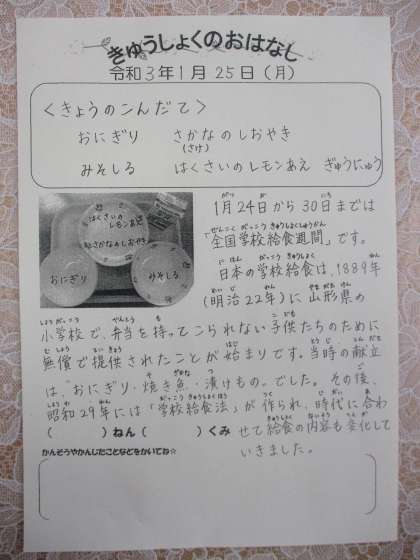 きゅうしょくのおはなし
令和3年1月25日(月)
<きょうのこんだて>
おにぎり さかなのしおやき
(さけ)
みそしる はくさいのレモンあえ ぎゅうにゅう
はくさいの
レモンあえ
さかなのしおやき
おにぎり みそしる
1月24日から30日までは
「全国学校給食週間」です。
日本の学校給食は、1889年
(明治22年)に山形県の
小学校で、弁当を持ってこられない子供たちのために
無償で提供されたことが始まりです。当時の献立
は、“おにぎり・焼き魚・漬けもの”でした。その後、
昭和29年には「学校給食法」が作られ、時代に合わ
せて給食の内容も変化して
いきました。
( )ねん( )くみ
かんそうやかんじたことなどをかいてね☆